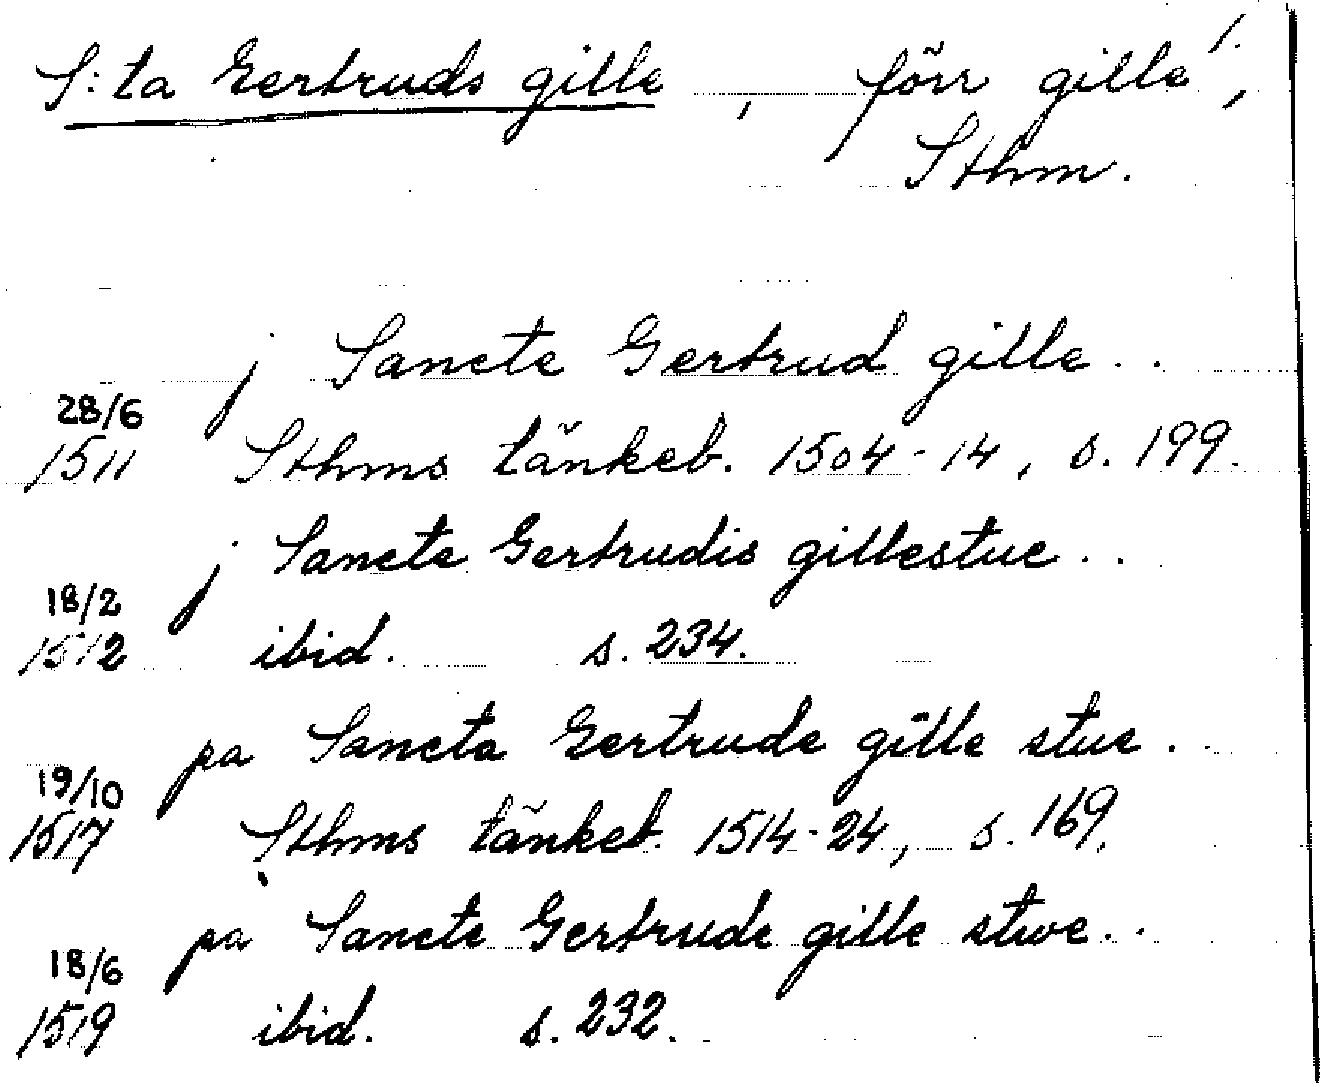 1.
S:ta Gertruds gille, förr gille,
Sthm.
j Sancte Gertrud gille..
28/6
1511 Sthms tänkeb. 1504-14, s. 199.
j Sancte Gertrudis gillestue..
18/2
1512 ibid. s. 234.
pa Sancta Gertrude gille stue..
19/10
1517 Sthms tänkeb. 1514-24, s. 169.
pa Sancte Gertrude gille stwe..
18/6
1519 ibid. s. 232.